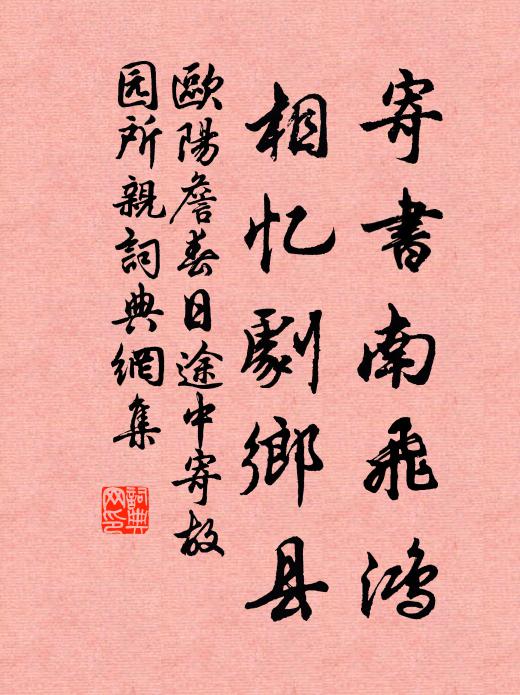 寄書南飛鴻
相忆劇鄉县
歐陽詹春日途中寄故
园所親詞典網集
詞典网印